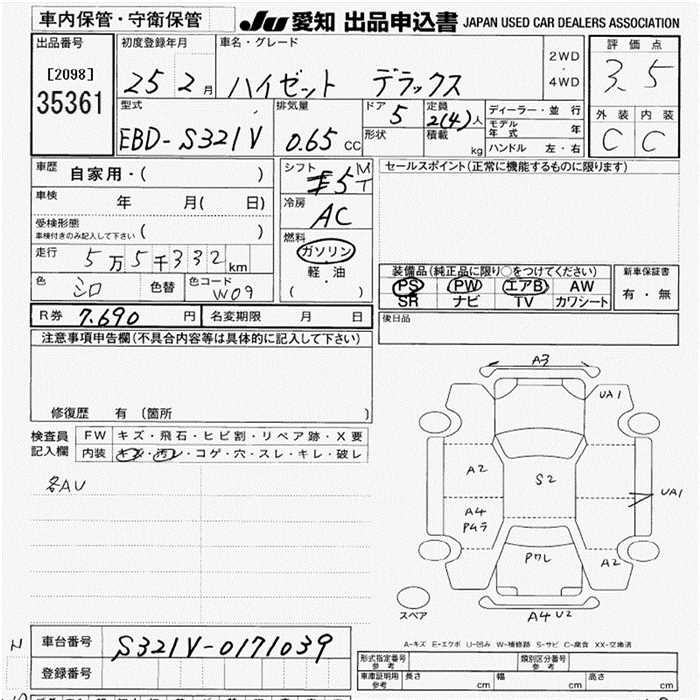 車内保管・守衛保管
JU 愛知 出品申込書 JAPAN USED CAR DEALERS ASSOCIATION
出品番号
[2098]
35361
初度登録年月
25 2 月
車名・グレード
ハイゼット デラックス
2WD
・
4WD
評価点
3.5
外装 内装
C C
型式
EBD-S321V
排気量
0.65 CC
ドア 5
形状
定員 2(4)人
積載 kg
ディーラー・並行
モデル年式 年
ハンドル 左・右
車歴
自家用・( )
車検
年 月( 日)
受検形態
車検付きのみ記入して下さい ( )
走行 5万5千332km
色 シロ 色替 色コード W09
シフト
5 M/T
冷房
AC
燃料
ガソリン
・
軽・油
( )
セールスポイント(正常に機能するものに限ります)
装備品(純正品に限り○をつけてください)
PS PW エアB AW
SR ナビ TV カワシート
新車保証書
有・無
R券 7,690 円 名変期限 月 日
後日品
注意事項申告欄(不具合内容等は具体的に記入して下さい)
修復歴 有 (箇所 )
検査員
記入欄
FW キズ・飛石・ヒビ割・リペア跡・X要
内装 キズ・汚レ・コゲ・穴・スレ・キレ・破レ
各AU
A3
UA1
A2
S2
A4
P4ラ
UA1
Pワレ
A2
A4 U2
スペア
A-キズ E-エクボ U-凹み W-補修跡 S-サビ C-腐食 XX-交換済
車台番号 S321V-0171039
登録番号
形式指定番号
参考
類別区分番号
参考
車庫証明用
参考
長さ cm 幅 cm 高さ cm